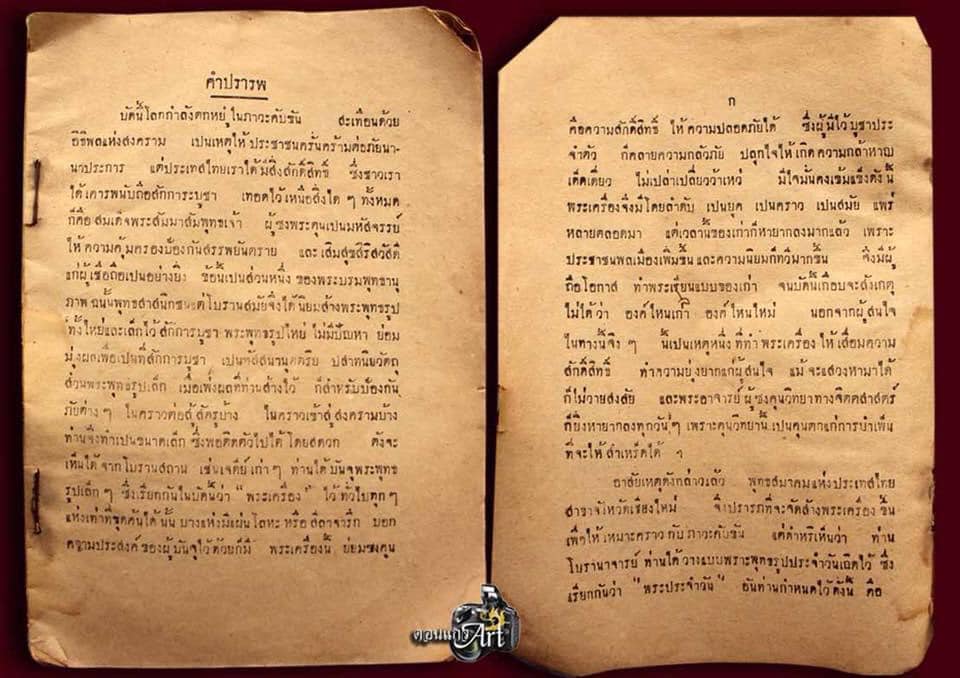 คำปรารพ
บัดนี้โลกกำลังตกหยู่ในภาวะคับขัน สะเทือนด้วย
อิธิพลแห่งสงคราม เปนเหตุให้ประชาชนครั่นคร้ามต่อภัยนา-
นาประการ แต่ประเทสไทยเราได้มีสิ่งสักดิ์สิทธิ์ ซึ่งชาวเรา
ได้เคารพนับถือสักการะบูชา เทอดไว้เหนือสิ่งใด ๆ ทั้งหมด
ก็คือสมเด็จพระสัมมาสัมพุทธเจ้า ผู้ซงพระคุนเปนมหัสจรรย์
ให้ความคุ้มครองป้องกันสรรพยันตราย และเสิมสุขสิริสวัสดิ์
แก่ผู้เชื่อถือเปนอย่างยิ่ง ข้อนี้เปนส่วนหนึ่ง ของพระบรมพุทธานุ
ภาพ ฉนั้นพุทธสาสนิกชนแต่โบรานสมัยจึงได้นิยมส้างพระพุทธรูป
ทั้งใหย่และเล็กไว้สักการะบูชา พระพุทธรูปใหย่ ไม่มีปัญหา ย่อม
มุ่งผลเพื่อเปนที่สักการะบูชา เปนทัสนานุตตริย ปสาทนียวัตถุ
ส่วนพระพุทธรูปเล็ก เมื่อเพ่งผลที่ท่านส้างไว้ ก็สำหรับป้องกัน
ภัยต่าง ๆ ในคราวต่อสู้สัตรูบ้าง ในคราวเข้าสู่สงครามบ้าง
ท่านจึงทำเปนขนาดเล็ก ซึ่งพอติดตัวไปได้โดยสดวก ดังจะ
เห็นได้จากโบรานสถาน เช่นเจดีย์เก่า ๆ ท่านได้บันจุพระพุทธ
รูปเล็ก ๆ ซึ่งเรียกกันในบัดนี้ว่า "พระเครื่อง" ไว้ทั่วไปทุก ๆ
แห่งเท่าที่ขุดค้นได้นั้น บางแห่งมีแผ่นโลหะ หรือสิลาจารึก บอก
ความประสงค์ของผู้บันจุไว้ด้วยก็มี พระเครื่องนี้ ย่อมซงคุน
ก
คือความสักดิ์สิทธิ์ ให้ความปลอดภัยได้ ซึ่งผู้มีไว้บูชาประ
จำตัว ก็คลายความกลัวภัย ปลุกใจให้เกิดความกล้าหาญ
เด็ดเดี่ยว ไม่เปล่าเปลี่ยวว้าเหว่ มีใจมั่นคงเข้มแข็งดังนี้
พระเครื่องจึ่งมีโดยลำดับ เปนยุค เปนคราว เปนสมัย แพร่
หลายตลอดมา แต่เวลานี้ของเก่าก็หายากลงมากแล้ว เพราะ
ประชาชนพลเมืองเพิ่มขึ้นและความนิยมก็ทวีมากขึ้น จึงมีผู้
ถือโอกาส ทำพระเรียนแบบของเก่า จนบัดนี้เกือบจะสังเกตุ
ไม่ได้ว่า องค์ไหนเก่า องค์ไหนใหม่ นอกจากผู้สนใจ
ในทางนี้จิง ๆ นี้เปนเหตุหนึ่ง ที่ทำพระเครื่องให้เสื่อมความ
สักดิ์สิทธิ์ ทำความยุ่งยากแก่ผู้สนใจ แม้จะแสวงหามาได้
ก็ไม่วายสงสัย และพระอาจารย์ผู้ซงคุนวิทยาทางจิตตสาสตร์
ก็ยิ่งหายากลงทุกวัน ๆ เพราะคุนวิทยานี้ เปนคุนตกแก่การบำเพ็น
ที่จะให้สำเหร็ดได้ ฯ
อาสัยเหตุดังกล่าวแล้ว พุทธสมาคมแห่งประเทสไทย
สาขาจังหวัดเชียงใหม่ จึงปรารภที่จะจัดส้างพระเครื่องขึ้น
เพื่อให้เหมาะคราวกับภาวะคับขัน แต่ดำหริเห็นว่า ท่าน
โบรานาจารย์ ท่านได้วางแบบพระพุทธรูปประจำวันเกิดไว้ ซึ่ง
เรียกกันว่า "พระประจำวัน" อันท่านกำหนดไว้ดังนี้ คือ
ดอนแก้ว
Art